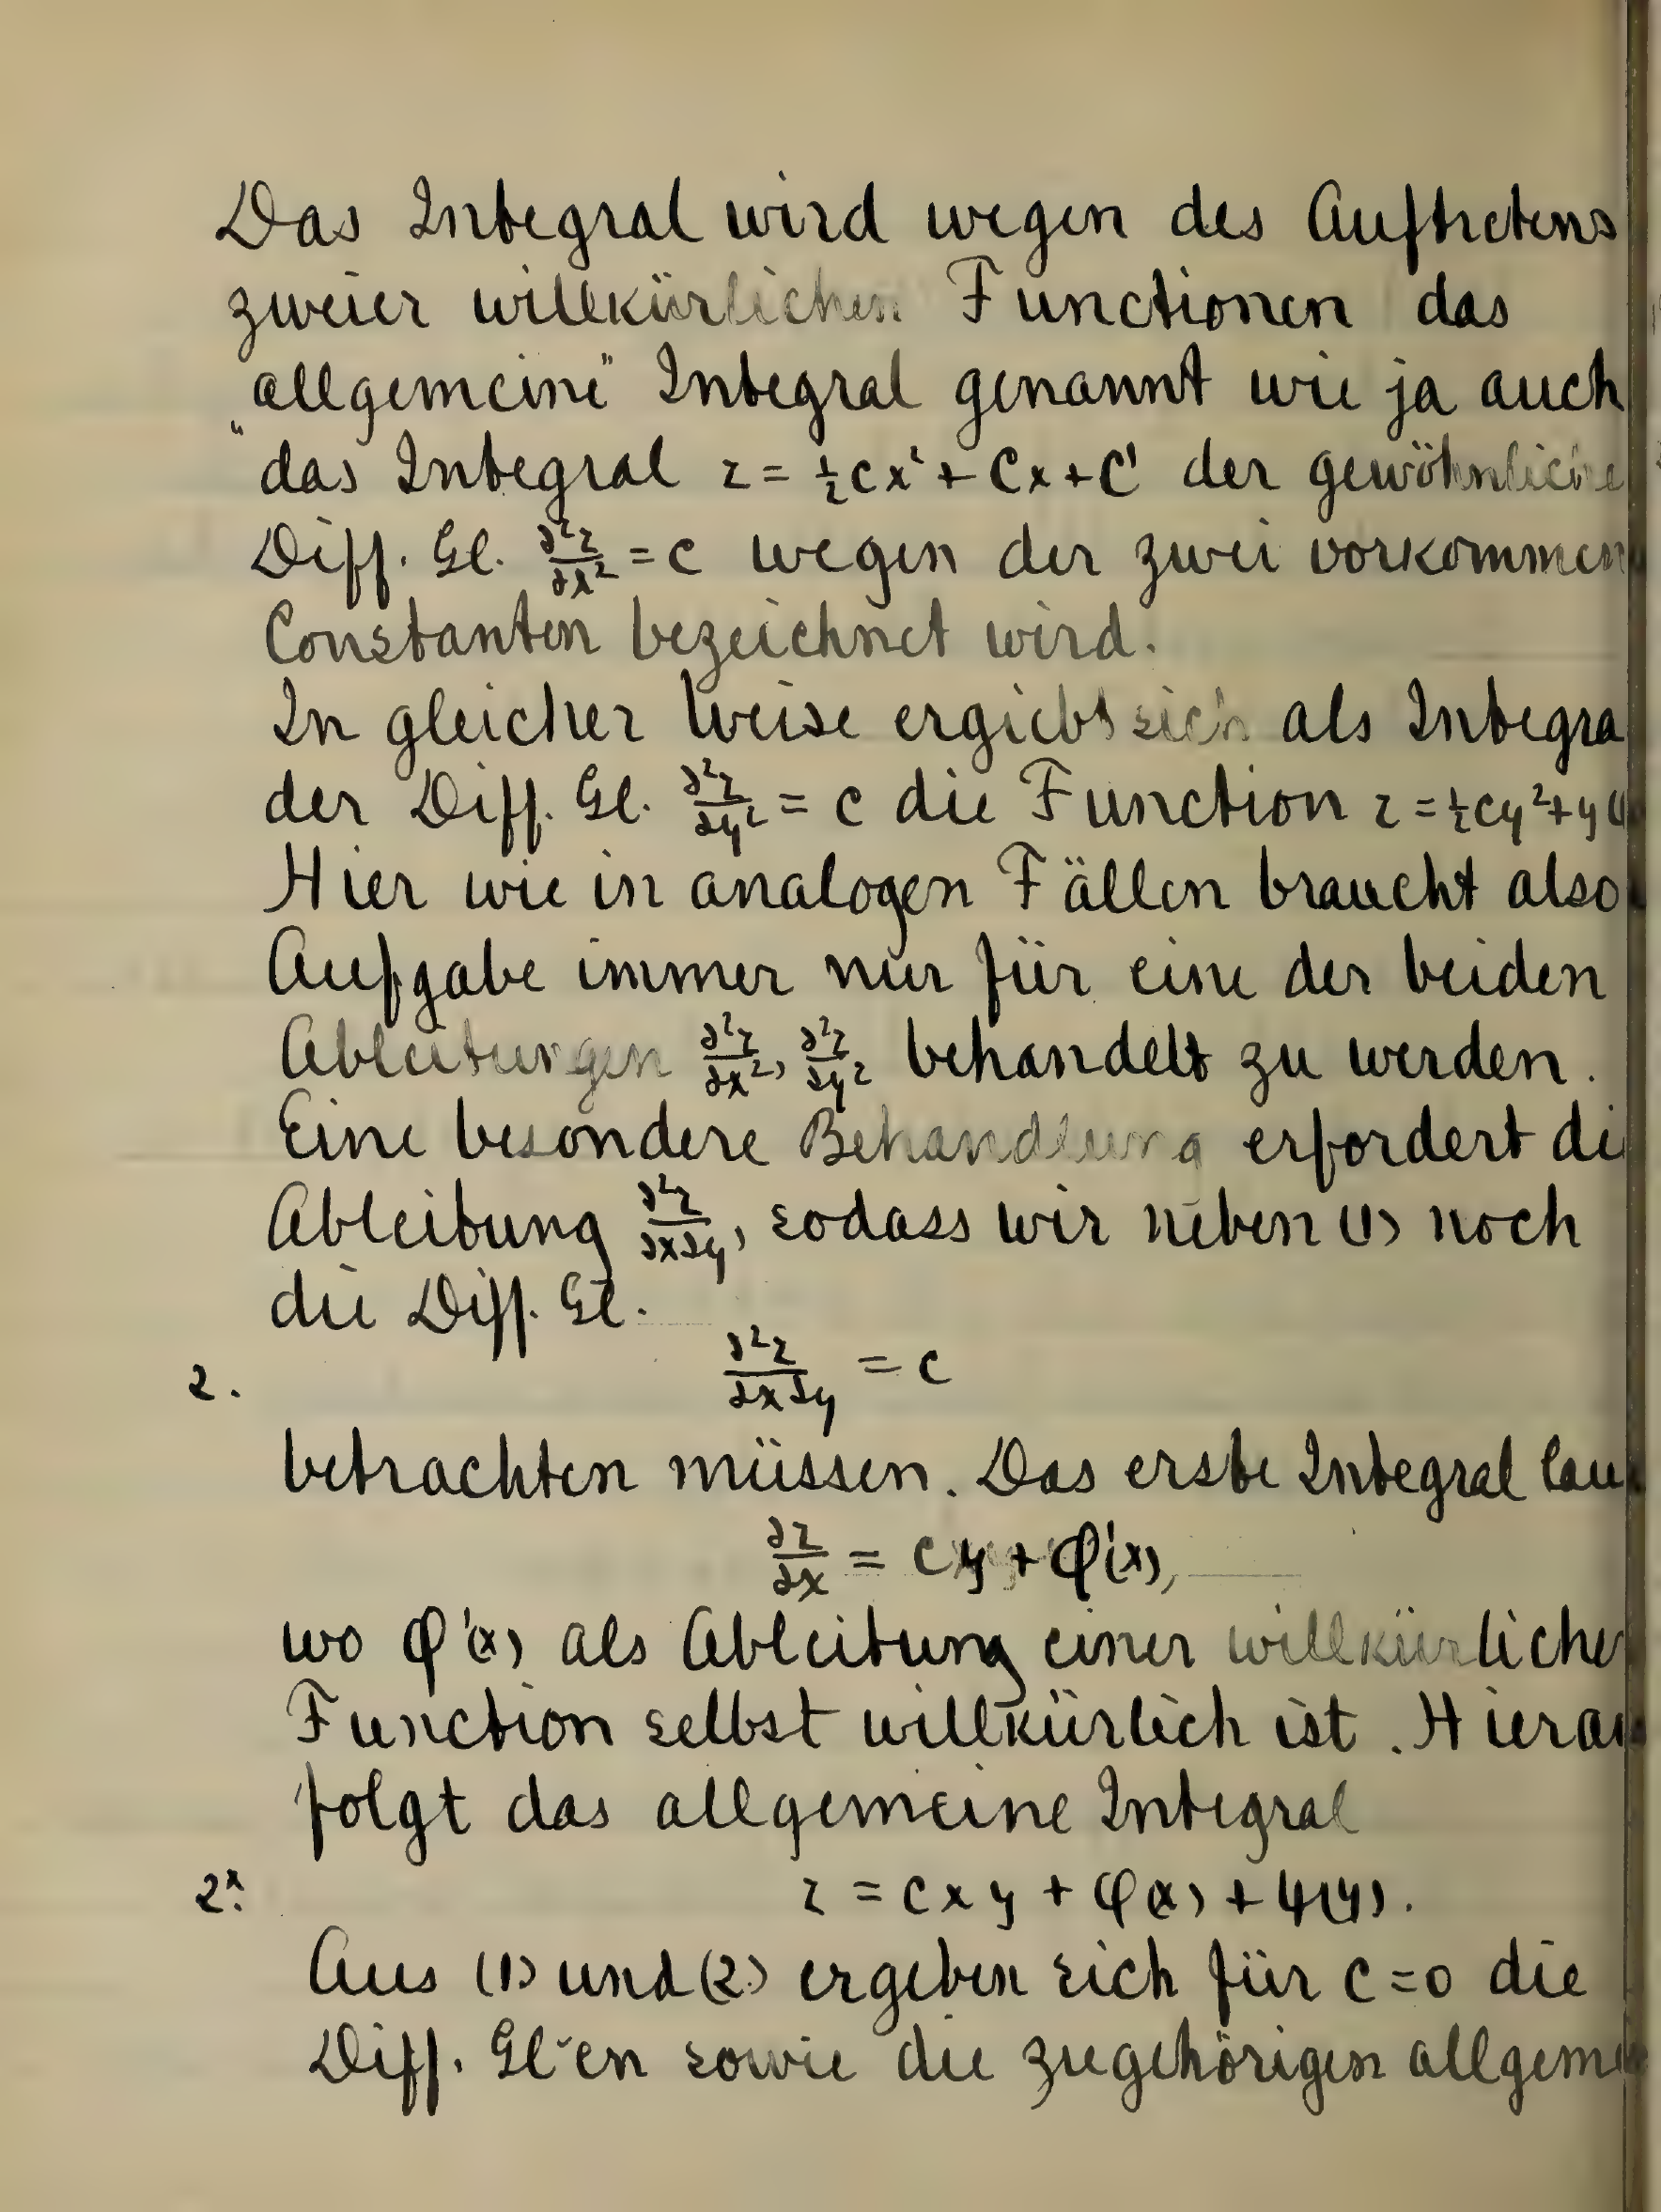 Das Integral wird wegen des Auftretens
zweier willkürlichen Functionen das
„allgemeine“ Integral genannt wie ja auch
das Integral z = ½cx² + Cx + C' der gewöhnliche
Diff. Gl. ∂²z/∂x² = c wegen der zwei vorkommen
Constanten bezeichnet wird.
In gleicher Weise ergiebt sich als Integra
der Diff. Gl. ∂²z/∂y² = c die Function z = ½cy² + y
Hier wie in analogen Fällen braucht also
Aufgabe immer nur für eine der beiden
Ableitungen ∂²z/∂x², ∂²z/∂y² behandelt zu werden.
Eine besondere Behandlung erfordert di
Ableitung ∂²z/∂x∂y, sodass wir neben (1) noch
die Diff. Gl.
2. ∂²z/∂x∂y = c
betrachten müssen. Das erste Integral lau
∂z/∂x = cy + φ'(x),
wo φ'(x) als Ableitung einer willkürlichen
Function selbst willkürlich ist. Hierau
folgt das allgemeine Integral
2ˣ. z = cxy + φ(x) + ψ(y).
Aus (1) und (2.) ergeben sich für c = 0 die
Diff. Gl~en sowie die zugehörigen allgem